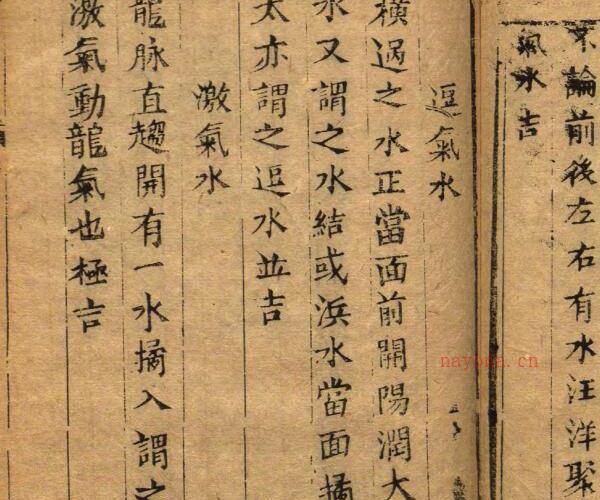 不論前後左右有水汪洋聚
氣水吉
逗氣水
橫過之水正當面前開陽潤大
水又謂之水結或浜水當面擕
太亦謂之逗水並吉
激氣水
龍脉直趨開有一水擕入謂之
激氣動龍氣也極吉
nayona.cn